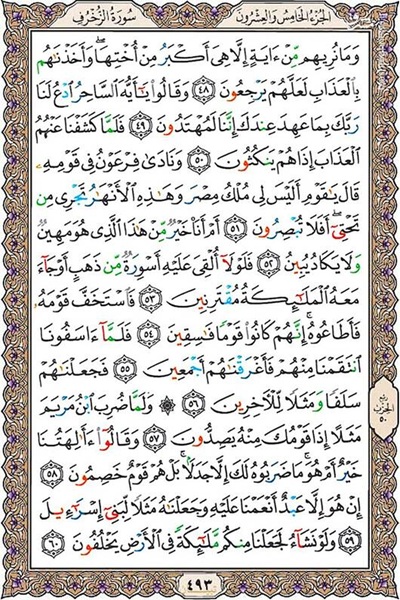 الجزء الخامس والعشرون
سورة الزخرف
وَمَا نُرِيهِم مِّنْ ءَايَةٍ إِلَّا هِيَ أَكْبَرُ مِنْ أُخْتِهَا ۖ وَأَخَذْنَٰهُم
بِالْعَذَابِ لَعَلَّهُمْ يَرْجِعُونَ ٤٨ وَقَالُوا۟ يَٰٓأَيُّهَ السَّاحِرُ ادْعُ لَنَا
رَبَّكَ بِمَا عَهِدَ عِندَكَ إِنَّنَا لَمُهْتَدُونَ ٤٩ فَلَمَّا كَشَفْنَا عَنْهُمُ
الْعَذَابَ إِذَا هُمْ يَنكُثُونَ ٥٠ وَنَادَىٰ فِرْعَوْنُ فِي قَوْمِهِۦ
قَالَ يَٰقَوْمِ أَلَيْسَ لِي مُلْكُ مِصْرَ وَهَٰذِهِ الْأَنْهَٰرُ تَجْرِي مِن
تَحْتِيٓ ۖ أَفَلَا تُبْصِرُونَ ٥١ أَمْ أَنَا۠ خَيْرٌ مِّنْ هَٰذَا الَّذِي هُوَ مَهِينٌ
وَلَا يَكَادُ يُبِينُ ٥٢ فَلَوْلَآ أُلْقِيَ عَلَيْهِ أَسْوِرَةٌ مِّن ذَهَبٍ أَوْ جَآءَ
مَعَهُ الْمَلَٰٓئِكَةُ مُقْتَرِنِينَ ٥٣ فَاسْتَخَفَّ قَوْمَهُۥ
فَأَطَاعُوهُ ۚ إِنَّهُمْ كَانُوا۟ قَوْمًا فَٰسِقِينَ ٥٤ فَلَمَّآ ءَاسَفُونَا
انتَقَمْنَا مِنْهُمْ فَأَغْرَقْنَٰهُمْ أَجْمَعِينَ ٥٥ فَجَعَلْنَٰهُمْ
سَلَفًا وَمَثَلًا لِّلْءَاخِرِينَ ٥٦ ۞ وَلَمَّا ضُرِبَ ابْنُ مَرْيَمَ
مَثَلًا إِذَا قَوْمُكَ مِنْهُ يَصِدُّونَ ٥٧ وَقَالُوٓا۟ ءَأَٰلِهَتُنَا
خَيْرٌ أَمْ هُوَ ۚ مَا ضَرَبُوهُ لَكَ إِلَّا جَدَلًۢا ۚ بَلْ هُمْ قَوْمٌ خَصِمُونَ ٥٨
إِنْ هُوَ إِلَّا عَبْدٌ أَنْعَمْنَا عَلَيْهِ وَجَعَلْنَٰهُ مَثَلًا لِّبَنِيٓ إِسْرَٰٓءِيلَ
٥٩ وَلَوْ نَشَآءُ لَجَعَلْنَا مِنكُم مَّلَٰٓئِكَةً فِي الْأَرْضِ يَخْلُفُونَ ٦٠
ربع
الحزب
٥٠
٤٩٣